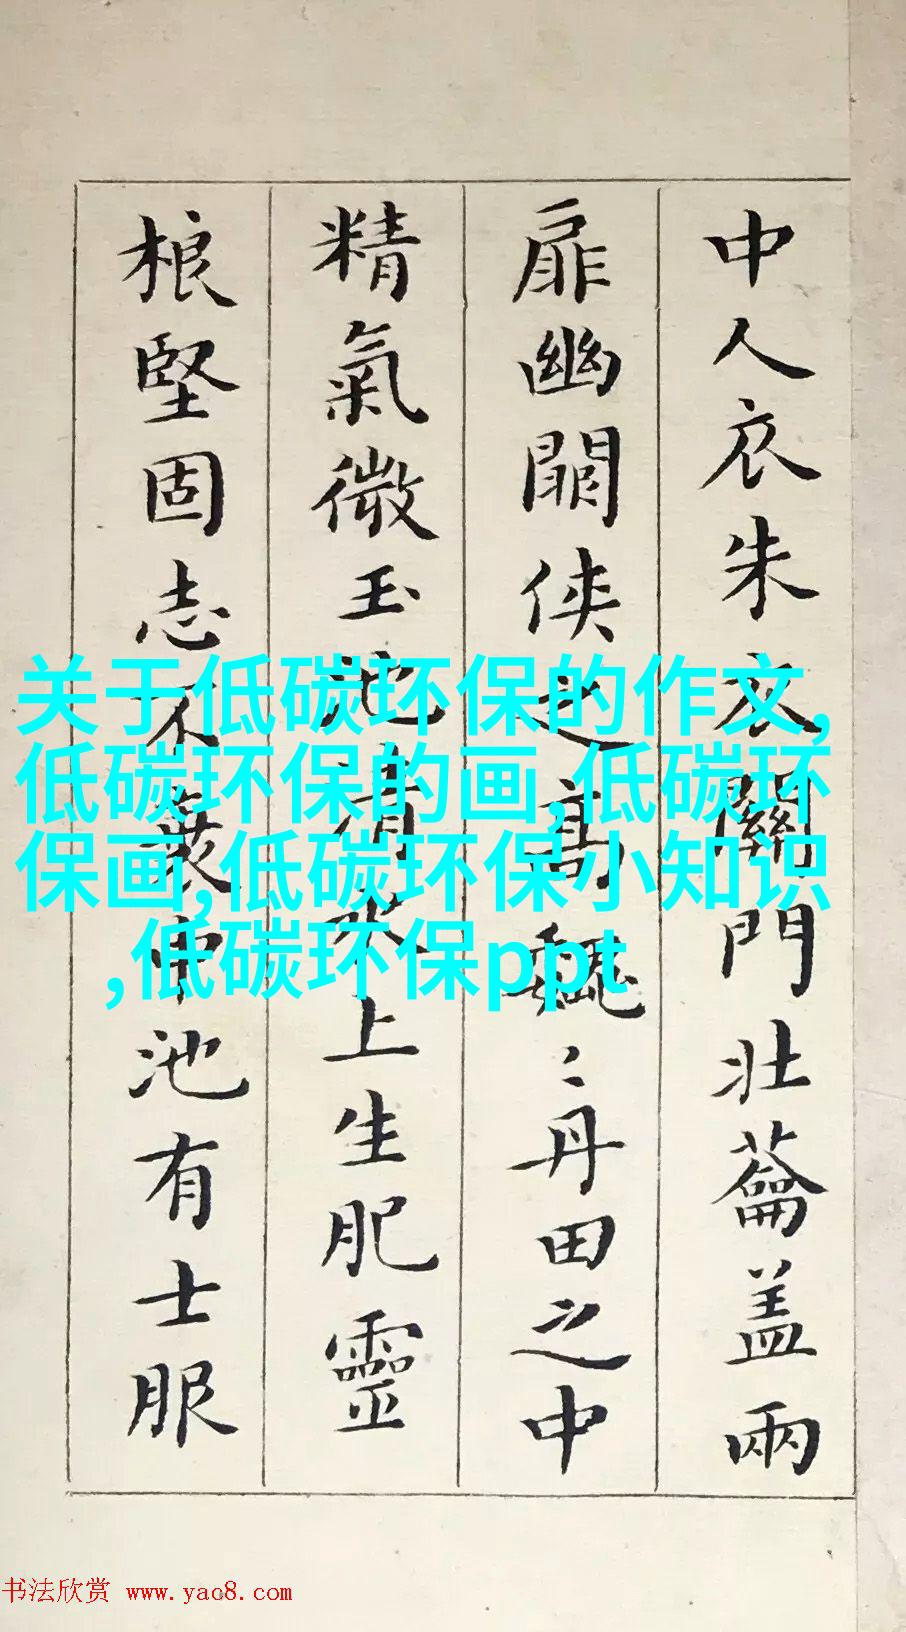 中人衣朱衣關門壯蘥盖兩
扉幽闗侠之髙巍〻丹田之中
精氣微玉池清水上生肥靈
根堅固志不衰中池有士服
关于低碳环保的作文,
低碳环保的画,低碳环
保画,低碳环保小知识
,低碳环保ppt
书法欣赏 www.yac8.com